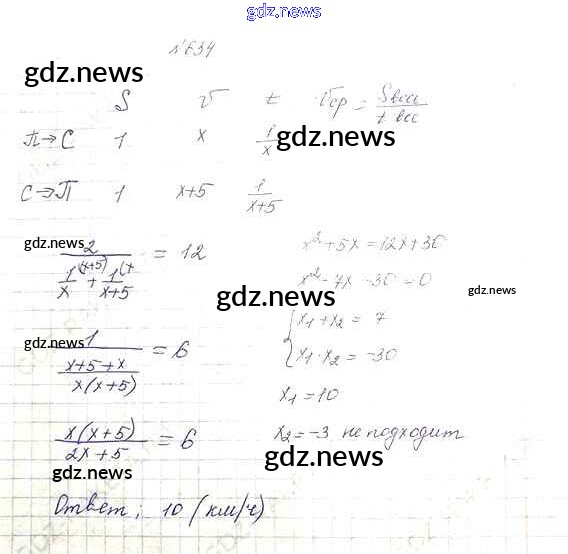 gdz.news
№634
gdz.news
S v t vср = Sвсь / t вс
П→С 1 x 1/x
gdz.news
С→П 1 x+5 1/(x+5)
gdz.news
2 / (1/x (x+5) + 1/(x+5) (x) = 12
x² + 5x = 12x + 30
x² - 7x - 30 = 0
gdz.news
gdz.news
{ x₁ + x₂ = 7
x₁ · x₂ = -30
1 / ((x+5+x) / x(x+5)) = 6
gdz.news
x₁ = 10
x(x+5) / (2x+5) = 6
x₂ = -3 не подходит
gdz.news
gdz.news
Ответ: 10 (км/ч)